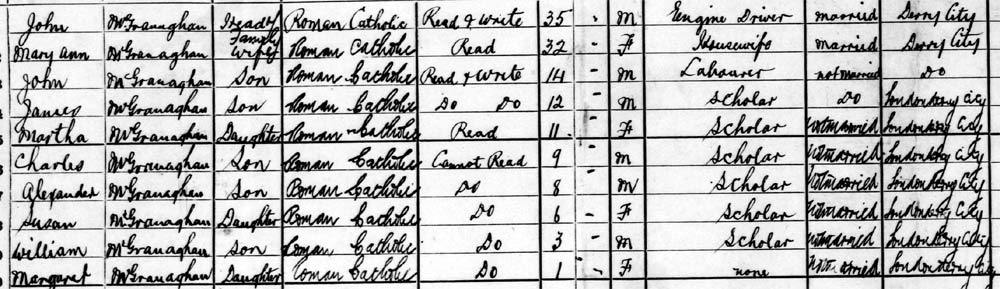 John McGranaghan Head of Family Roman Catholic Read & Write 35 - M Engine Driver married Derry City
Mary Ann McGranaghan Wife Roman Catholic Read 32 - F Housewife Married Derry City
John McGranaghan Son Roman Catholic Read & Write 14 - M Labourer not married Do
James McGranaghan Son Roman Catholic Do Do 12 - M Scholar Do Londonderry City
Martha McGranaghan Daughter Roman Catholic Read 11 - F Scholar Not married Londonderry City
Charles McGranaghan Son Roman Catholic Cannot Read 9 - M Scholar Not married Londonderry City
Alexander McGranaghan Son Roman Catholic Do 8 - M Scholar Not married Londonderry City
Susan McGranaghan Daughter Roman Catholic Do 6 - F Scholar Not married Londonderry City
William McGranaghan Son Roman Catholic Do 3 - M Scholar Not married Londonderry City
Margaret McGranaghan Daughter Roman Catholic Do 1 - F none Not married Londonderry City